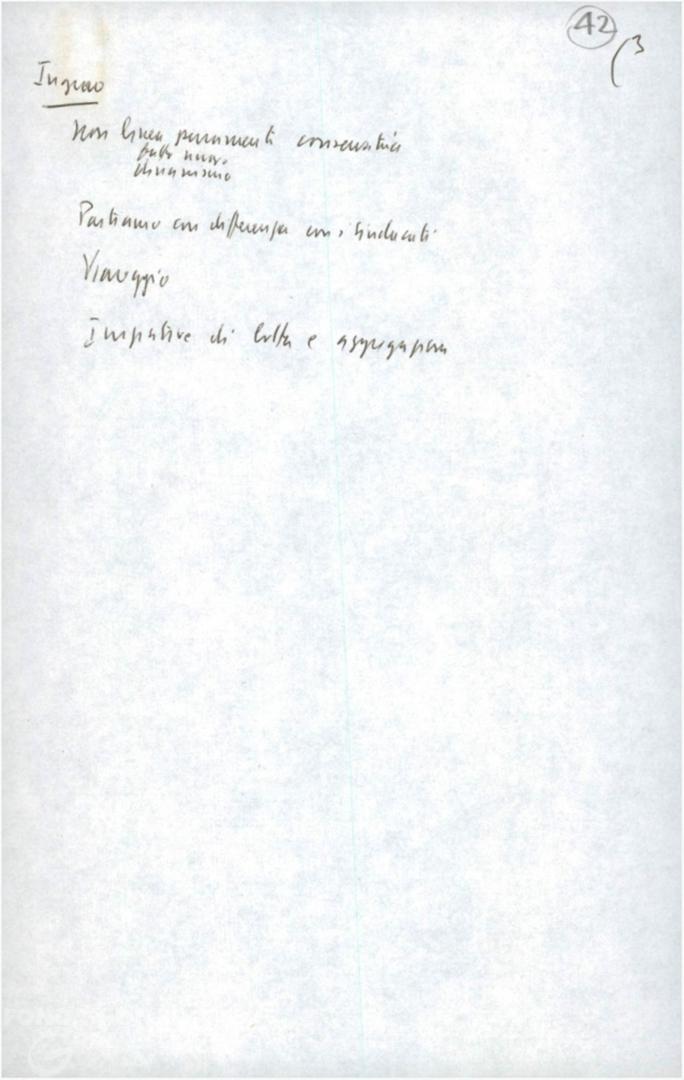 42
(3
Ingrao
Non linea puramente conservatrice
fatto nuovo
dinamismo
Partiamo con differenza con i sindacati
Viaggio
Iniziative di lotta e aggregazione